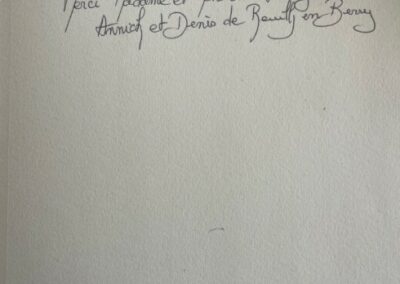 Merci Madame et
Annick et Denis de Reuilly en Berry